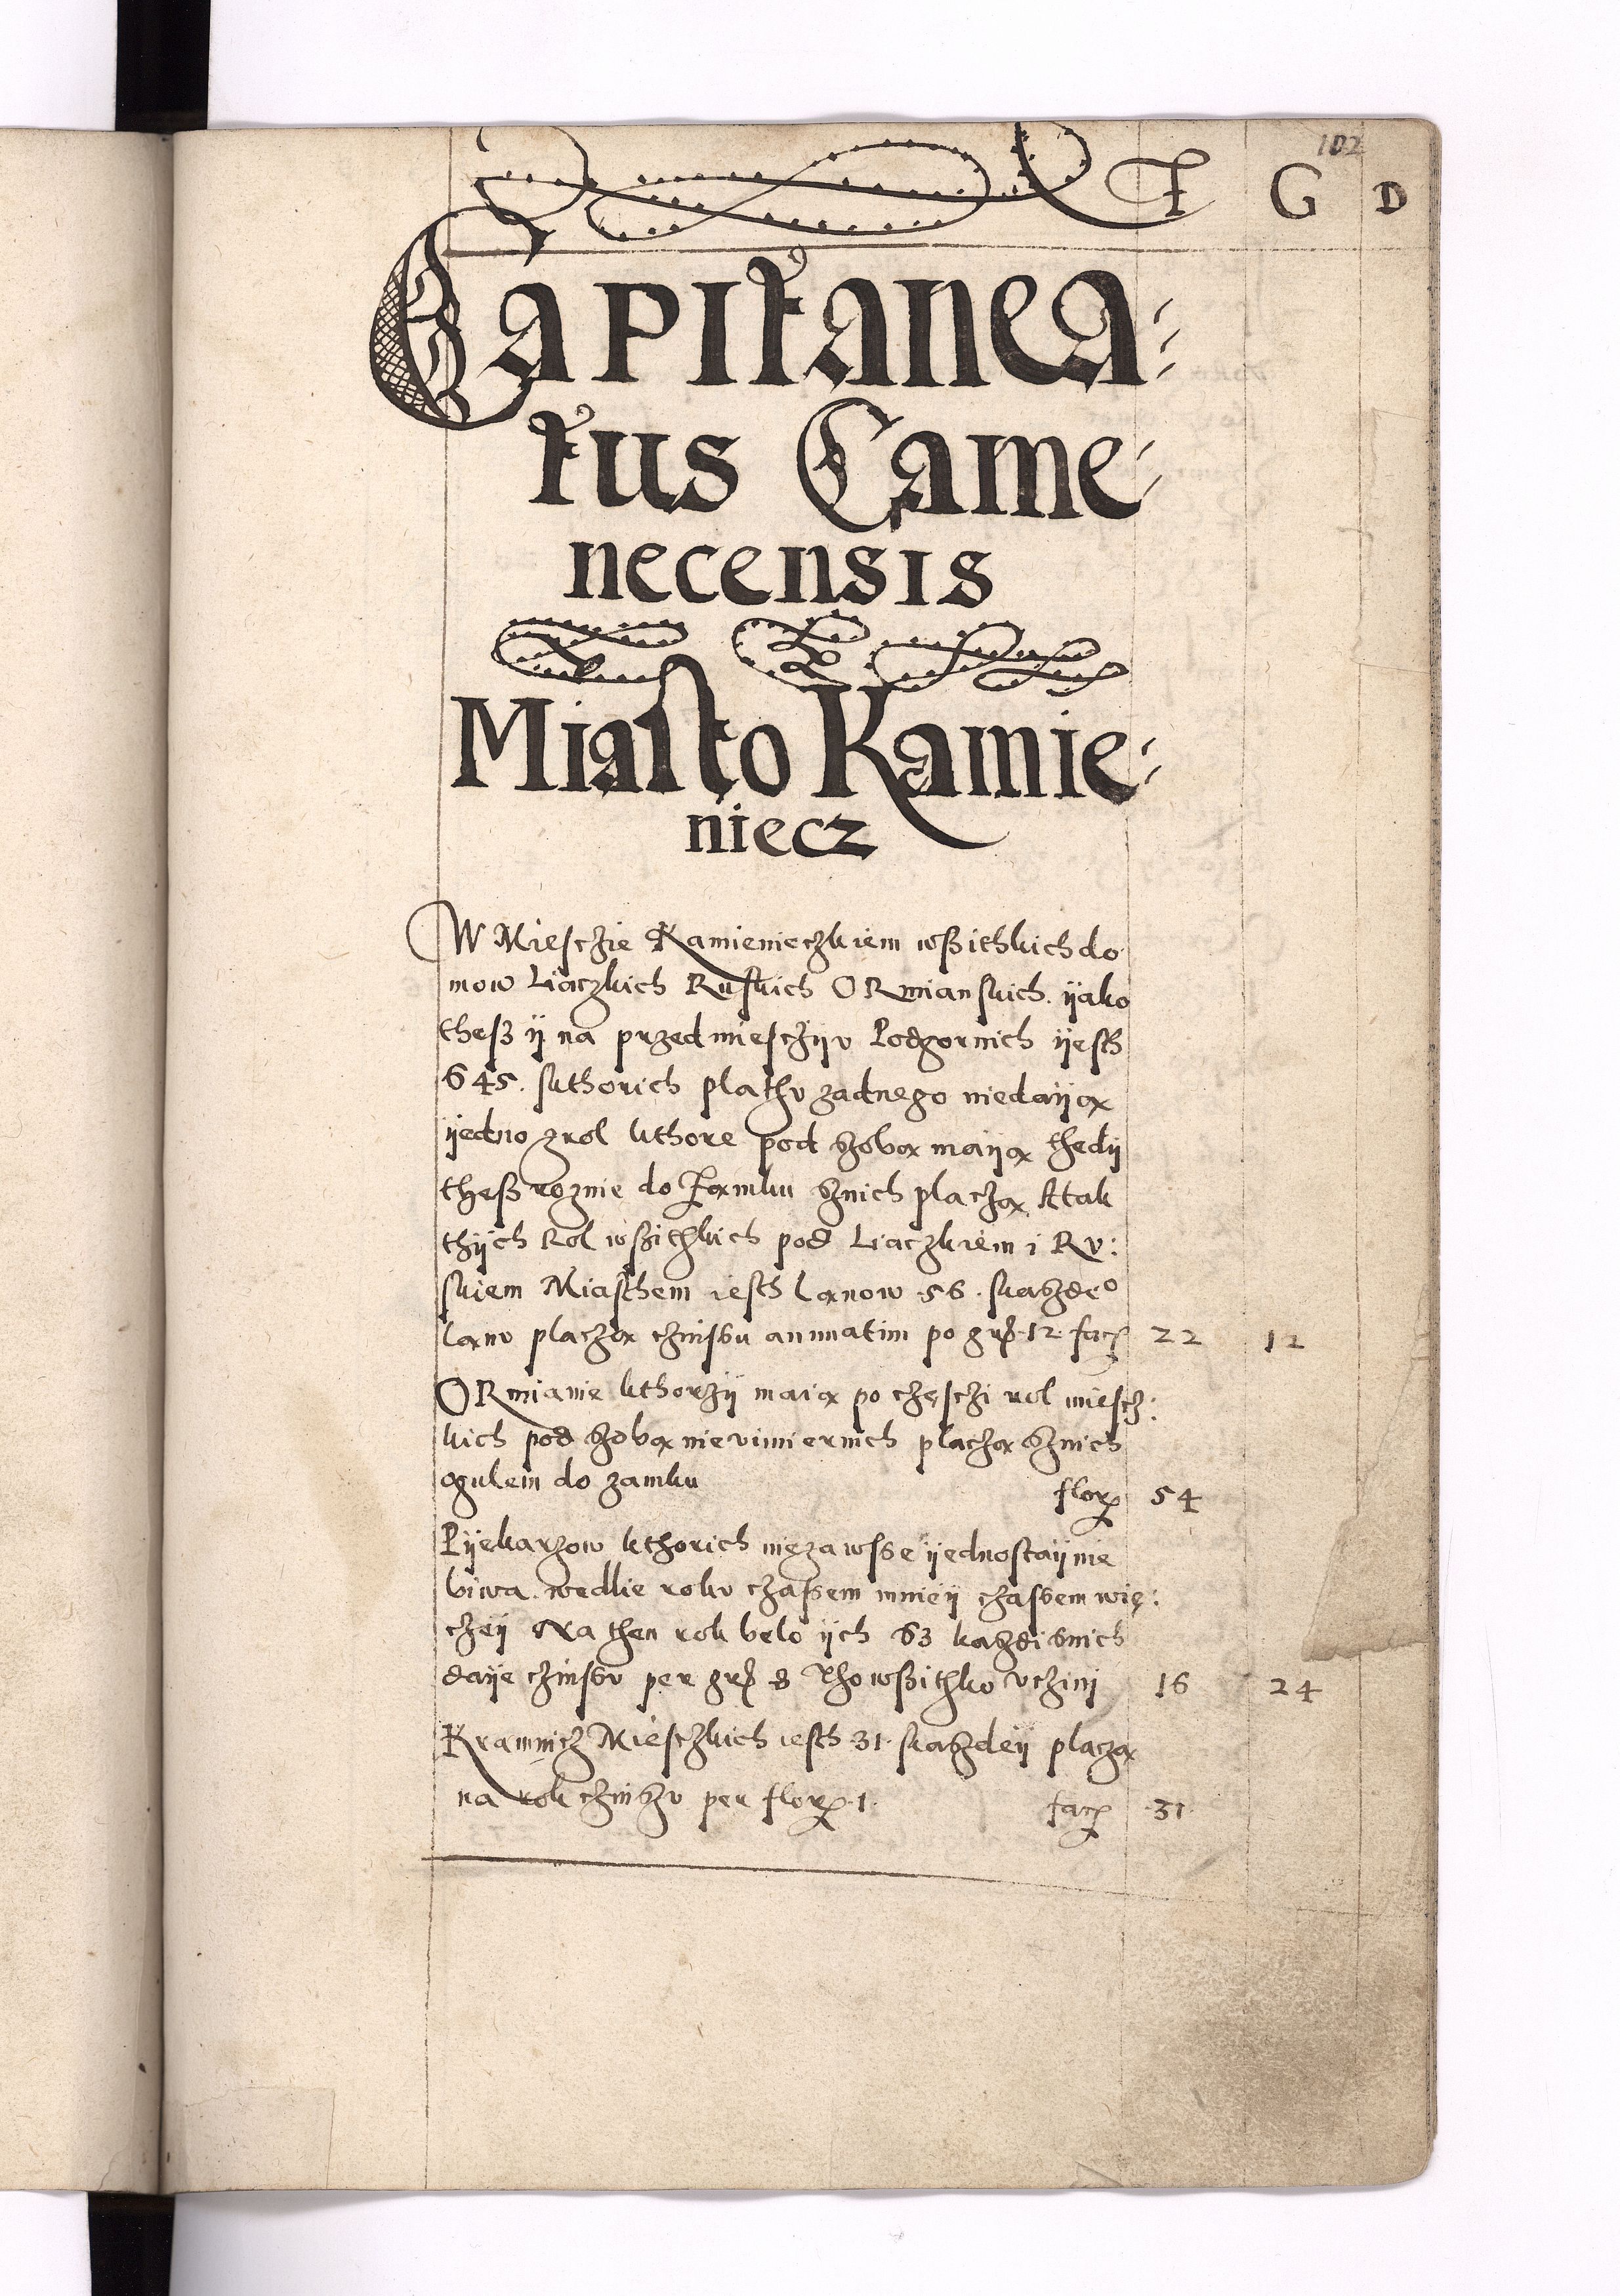 102
F G D
Capitanea:
tus Came:
necensis
Miasto Kamie:
niecz
W Miesczie Kamienieczkiem wßithkich do
mow Liaczkich Ruskich ORmianskich. ÿako
theß ÿ na przedmiesczÿv Podgornich ÿesth
645. skthorich plathv zadnego niedaÿą
ÿedno zrol kthore pod szobą maÿą thedÿ
theß roznie do Zamku sznich placzą Atak
thÿch Rol wßithkich pod Liaczkiem i Rv:
skiem Miasthem iesth lanow 56. skaszdeo
lanv placzą czinsßu annuatim po grß 12. facit 22 12
ORmianie kthorzÿ maią po częsczi rol miescz:
kich pod szobą nievimiernich placzą sznich
ogulem do zamku flor. 54
Pÿekarzow kthorich niezawsße ÿednostaÿnie
biwa. wedlie rokv czaßem mnieÿ czasßem wię:
czeÿ Na then rok belo ÿch 63 kaszdi snich
daÿe czinsßv per grß 8 Tho wßithko vczini 16 24
Kramnicz Miesczkich iesth 31. skaszdeÿ placzą
na rok czinszv per flor. 1. facit 31